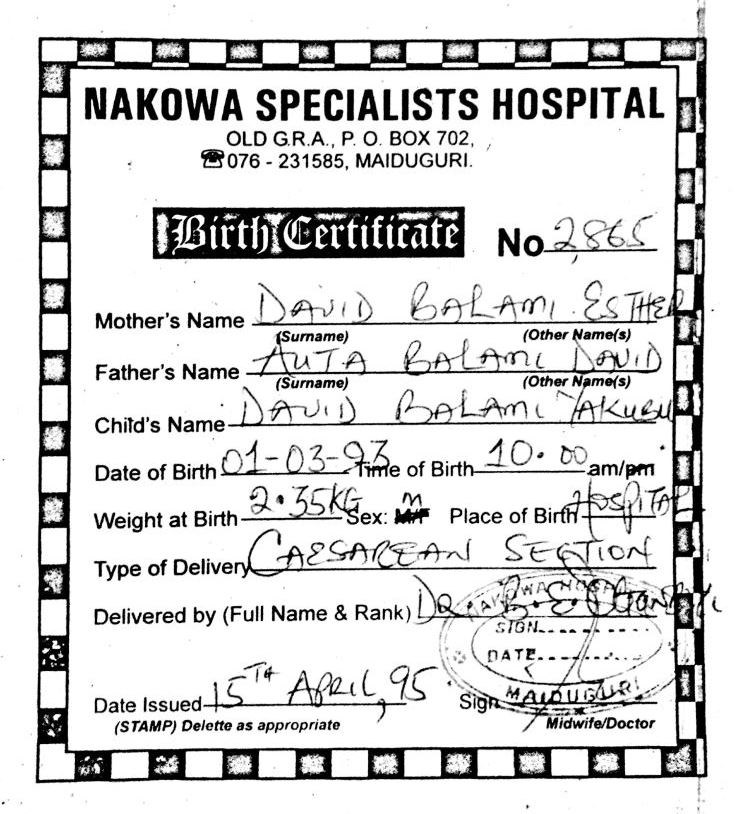 NAKOWA SPECIALISTS HOSPITAL
OLD G.R.A., P. O. BOX 702,
☎076 - 231585, MAIDUGURI.
Birth Certificate No 2,865
Mother's Name DAVID BALAMI ESTHER
(Surname) (Other Name(s)
Father's Name AUTA BALAMI DAVID
(Surname) (Other Name(s)
Child's Name DAVID BALAMI YAKUBU
Date of Birth 01-03-93 Time of Birth 10.00 am/pm
Weight at Birth 2.35KG Sex: M M/F Place of Birth HOSPITAL
Type of Delivery CAESAREAN SECTION
Delivered by (Full Name & Rank) Dr. B. E.
NAKOWA HOSP
SIGN
DATE
MAIDUGURI
Date Issued 15TH APRIL, 95 Sign
(STAMP) Delette as appropriate Midwife/Doctor